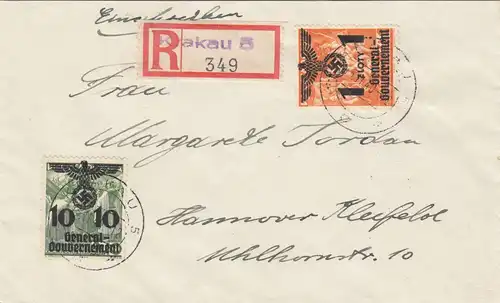 Einschreiben
R
Krakau 5
349
1 1
ZŁOTY
General-
Gouvernement
Frau
Margarete Jordan
10 10
General-
Gouvernement
U 5
Hannover Kleefeld
Uhlhornstr. 10